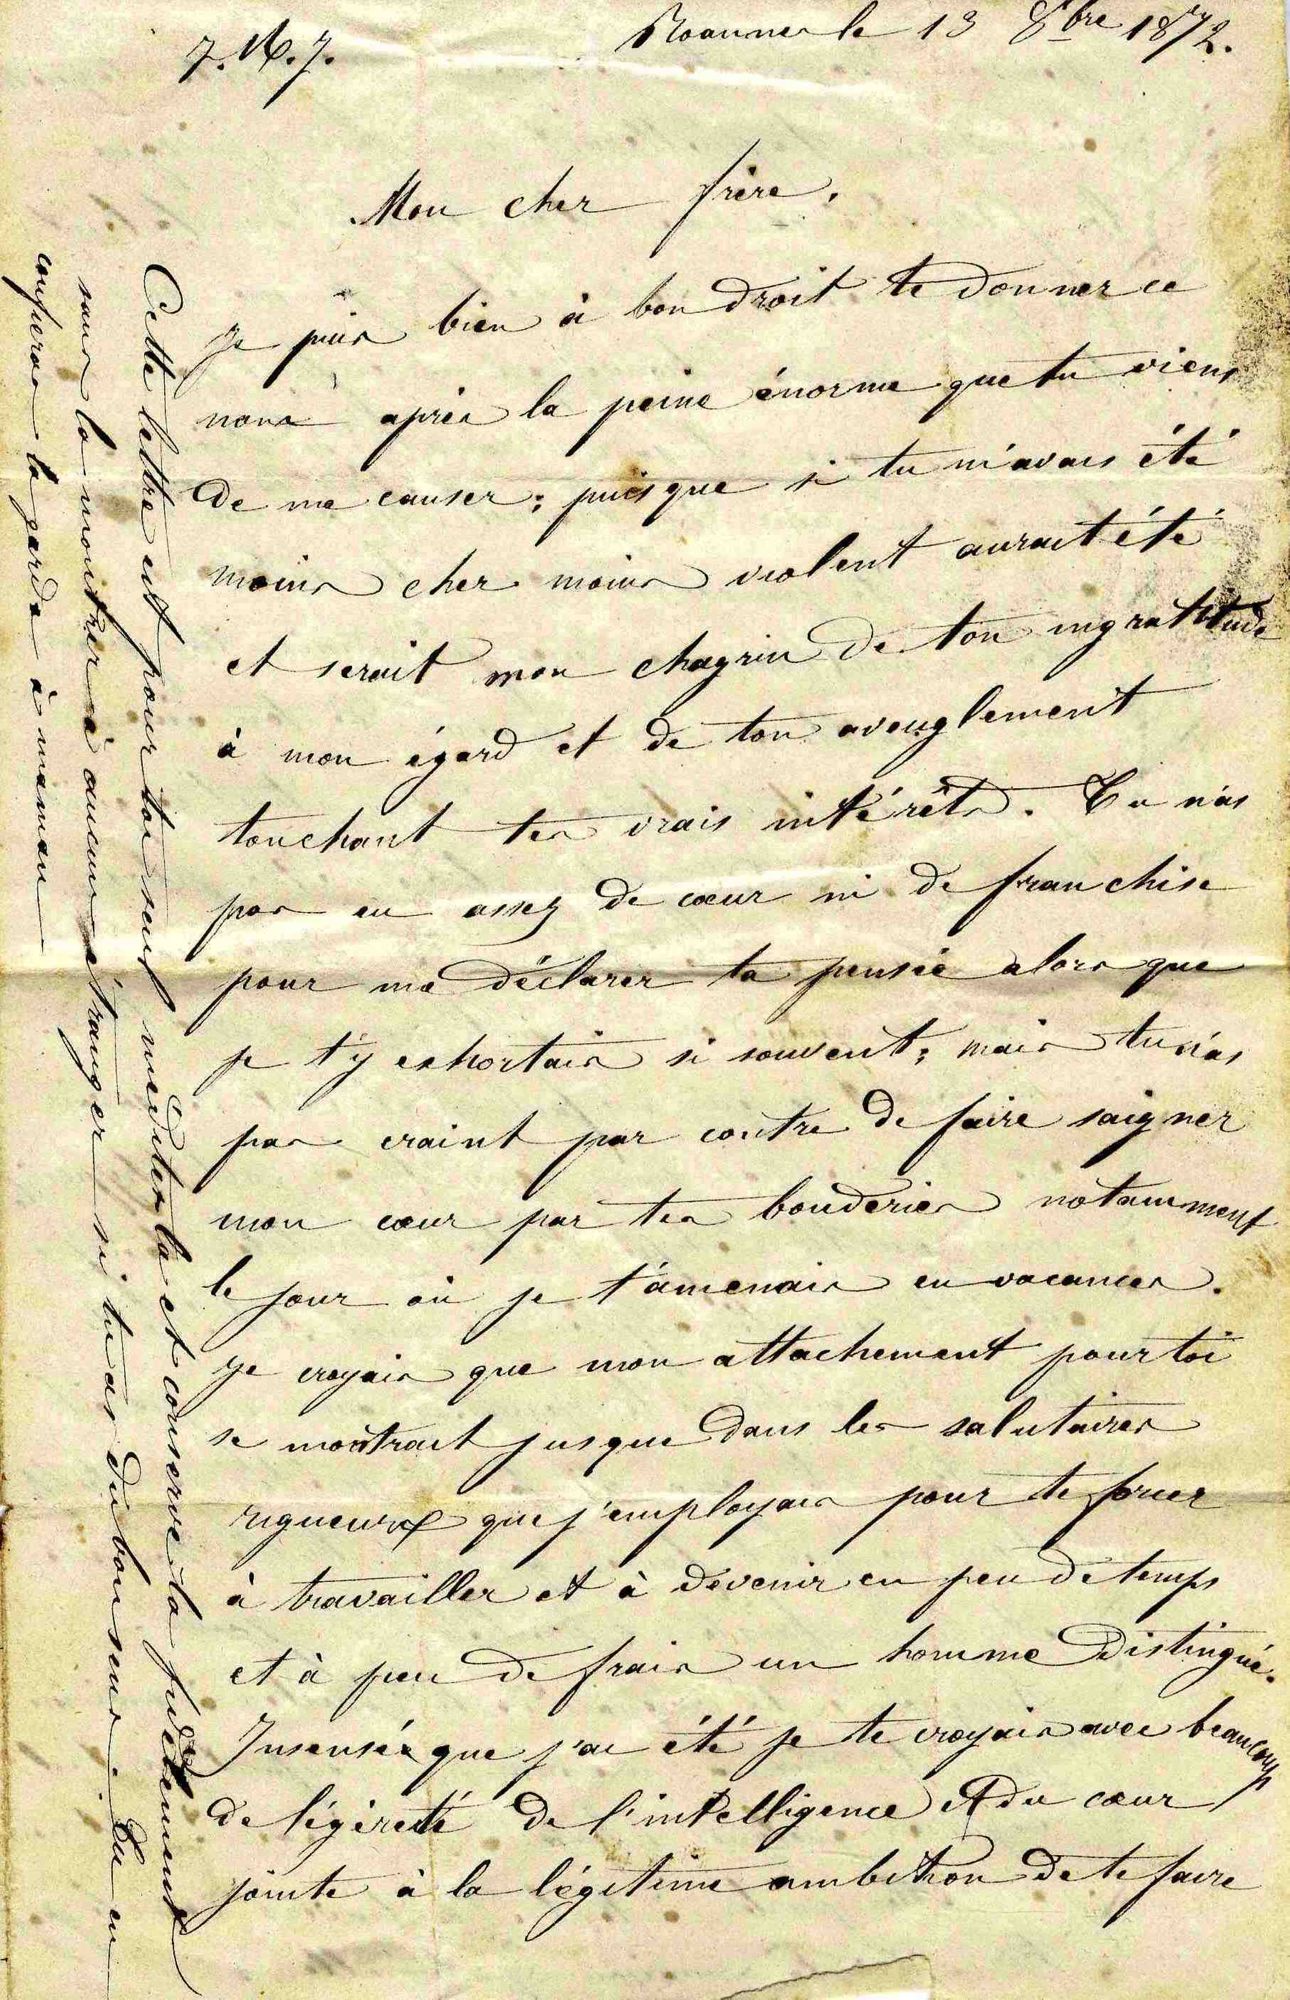 J. M. J.
Roanne le 13 8bre 1872.
Mon cher frère,
je puis bien à bon droit te donner ce
nom après la peine énorme que tu viens
de me causer; puisque si tu m'avais été
moins cher moins violent aurait été
et serait mon chagrin de ton ingratitude
à mon égard et de ton aveuglement
touchant tes vrais intérêts. Tu n'as
pas eu assez de cœur ni de franchise
pour me déclarer ta pensée alors que
je t'y exhortais si souvent; mais tu n'as
pas craint par contre de faire saigner
mon cœur par tes bouderies notamment
le jour où je t'amenais en vacances.
Je croyais que mon attachement pour toi
se montrait jusque dans les salutaires
rigueurs que j'employais pour te forcer
à travailler et à devenir en peu de temps
et à peu de frais un homme distingué.
Insensée que j'ai été je te croyais avec beaucoup
de légèreté de l'intelligence et du cœur
jointe à la légitime ambition de te faire
Cette lettre est pour toi seul médites la et conserve la fidèlement
sans la montrer à aucun étranger si tu as du bon sens. Tu en
confieras la garde à maman